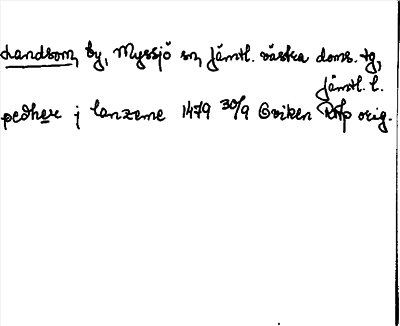 Landsom, by, Myssjö sn, Jämtl. västra doms. tg,
Jämtl. l.
pedher j lanzeme 1479 30/9 Oviken RAp orig.